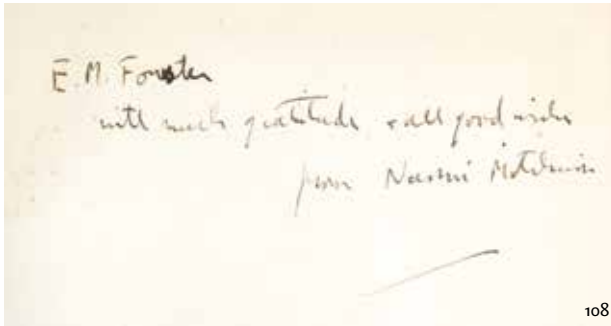 E.M. Forster
with much gratitude & all good wishes
from Naomi Mitchison
108